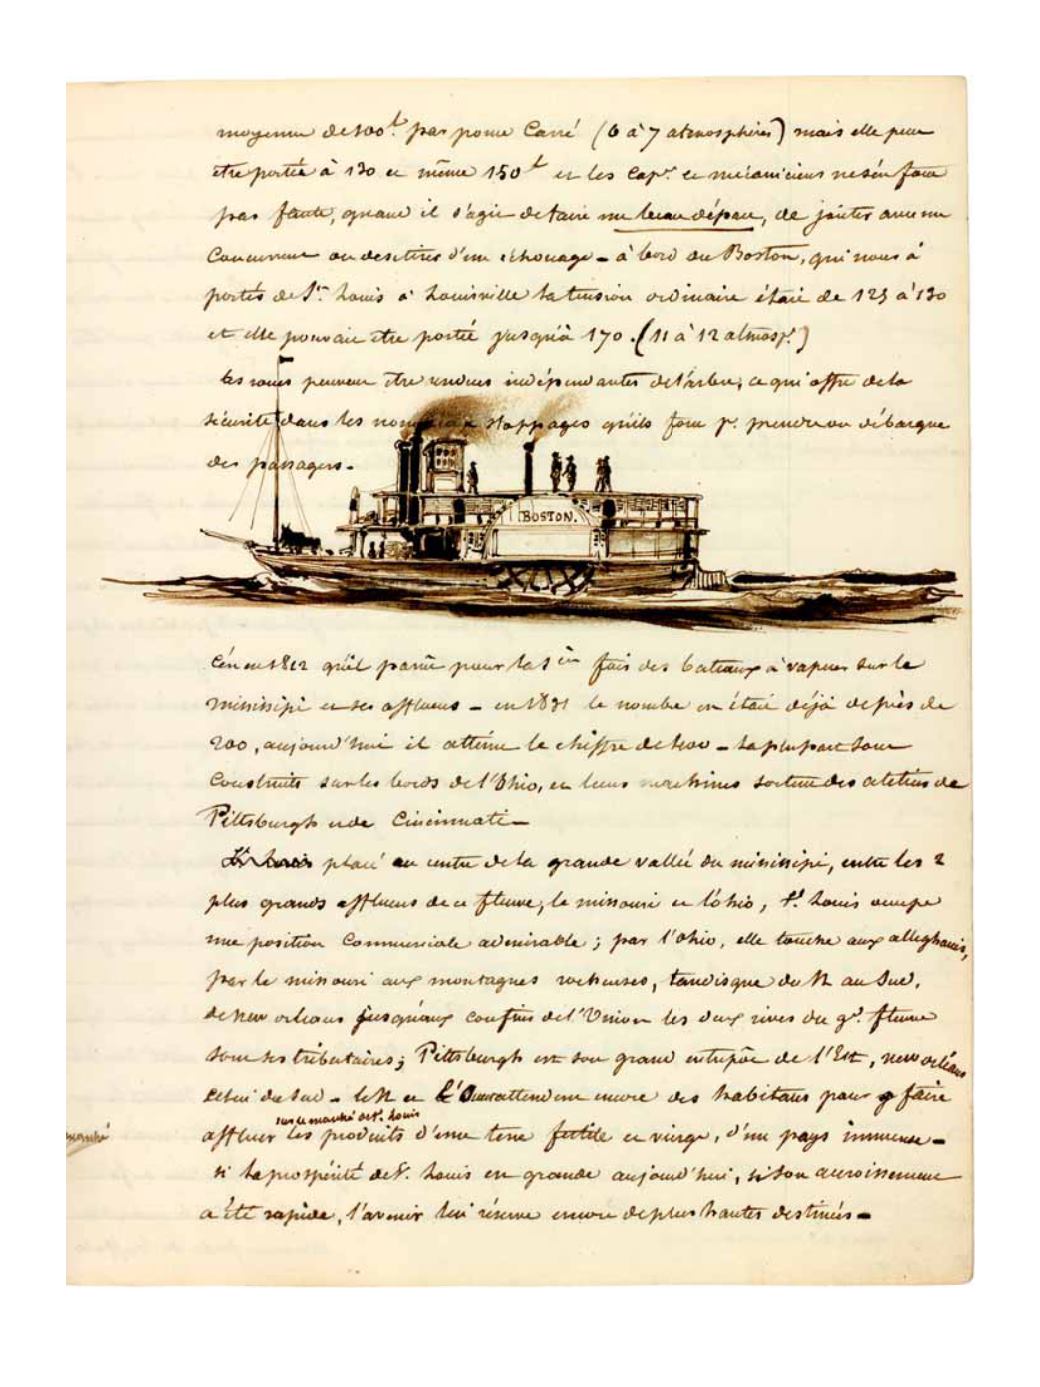 moyenne de 100ᵗ. par pouce Carré (6 à 7 atmosphères) mais elle peut
être portée à 130 et même 150ᵗ et les Capⁿˢ et mécaniciens ne s'en font
pas faute, quand il s'agit de faire un beau départ, de jouter avec un
Concurrent ou de se tirer d'un échouage - à bord du Boston, qui nous à
portés de Sᵗ Louis à Louisville la tension ordinaire était de 125 à 130
et elle pouvait être portée jusqu'à 170. (11 à 12 atmosp.)
Les roues peuvent être rendues indépendantes de l'arbre; ce qui offre de la
sécurité dans les nombreux stoppages qu'ils font pʳ. prendre ou débarque
des passagers -
BOSTON.
C'én en 1812 qu'il parut pour la 1ère fois des bateaux à vapeur sur le
missisipi et ses affluens - en 1831 le nombre en était déjà de près de
200, aujourd'hui il atteint le chiffre de - la plupart sont
Construits sur les bords de l'Ohio, et leurs machines sortent des ateliers de
Pittsburgh et de Cincinnati -
St Louis placé au centre de la grande vallée du missisipi, entre les 2
plus grands affluens de ce fleuve, le missouri et l'ohio, Sᵗ. Louis occupe
une position Commerciale admirable; par l'Ohio, elle touche aux alleghanis,
par le missouri aux montagnes rocheuses, tandisque du N au Sud,
de new orleans jusqu'aux confins de l'Union les deux rives du gᵈ. fleuve
sont ses tributaires; Pittsburgh est son grand entrepôt de l'Est, new orléans
celui du Sud - le N et l'Ouest attendent encore des habitans pour y faire
sur le marché de Sᵗ. Louis
affluer les produits d'une terre fertile et vierge, d'un pays immense -
marché
si la prospérité de Sᵗ. Louis est grande aujourd'hui, si son accroissement
a été rapide, l'avenir lui réserve encore de plus hautes destinées -